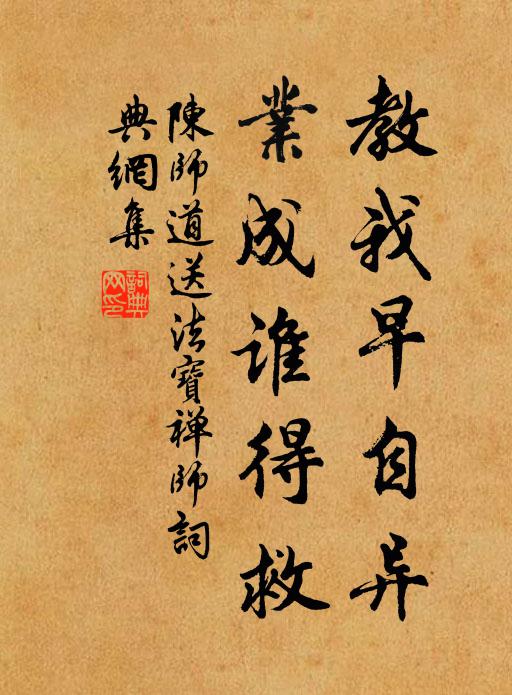 教我早自异
業成谁得救
陳師道送法寶禅師詞
典網集
詞典
网印